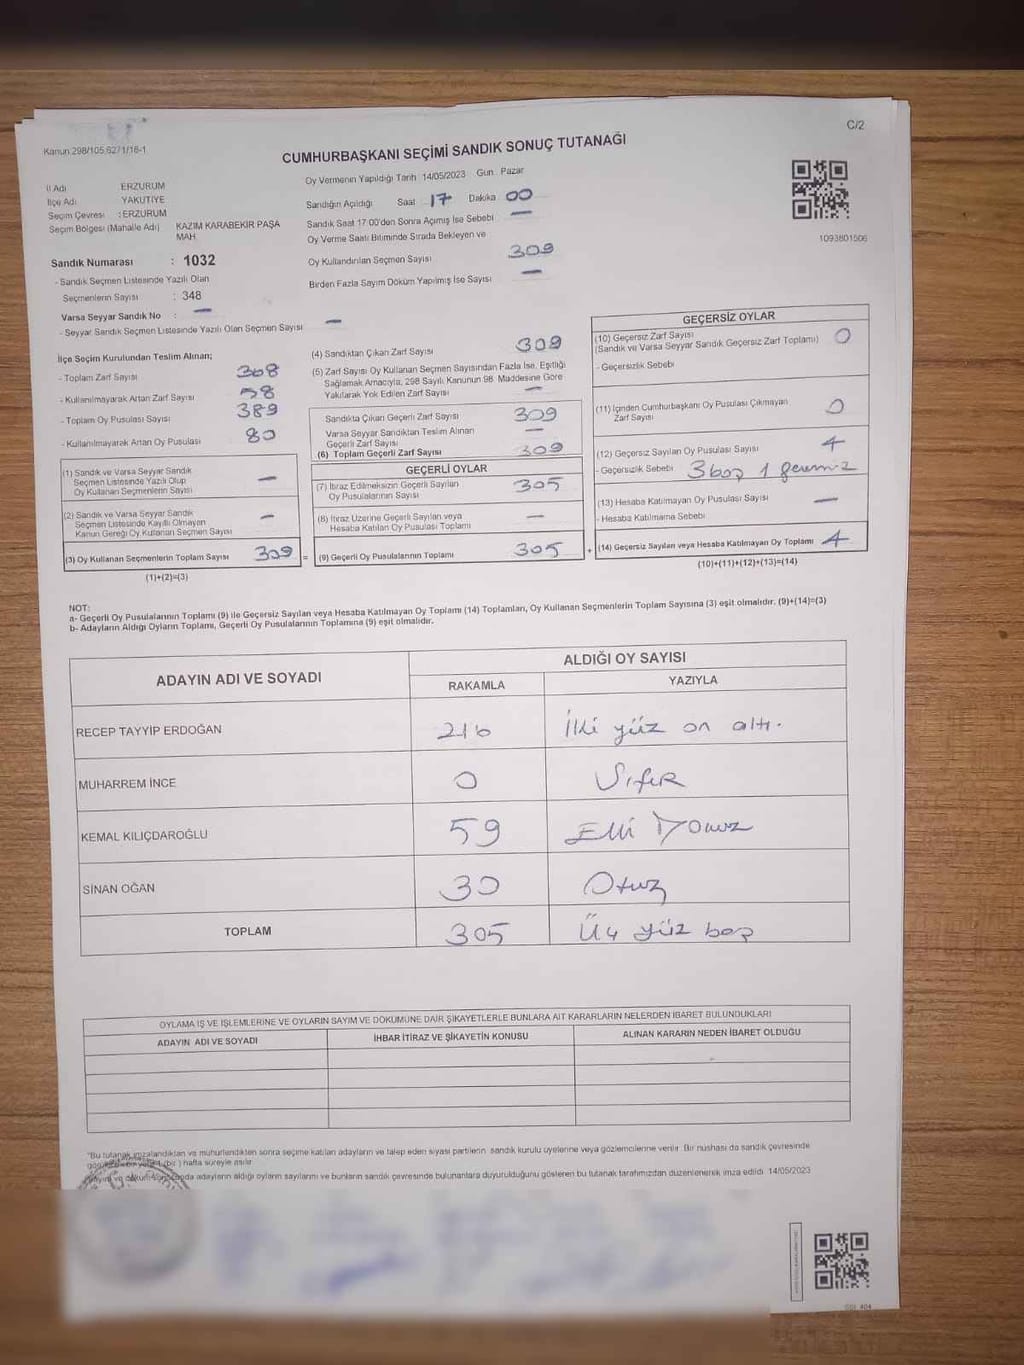 C/2
Kanun:298/105,6271/16-1
CUMHURBAŞKANI SEÇİMİ SANDIK SONUÇ TUTANAĞI
İl Adı ERZURUM
İlçe Adı YAKUTİYE
Seçim Çevresi : ERZURUM
Seçim Bölgesi (Mahalle Adı) KAZIM KARABEKİR PAŞA
MAH.
Sandık Numarası : 1032
- Sandık Seçmen Listesinde Yazılı Olan
Seçmenlerin Sayısı : 348
Varsa Seyyar Sandık No : —
- Seyyar Sandık Seçmen Listesinde Yazılı Olan Seçmen Sayısı —
Oy Vermenin Yapıldığı Tarih 14/05/2023 Gün Pazar
Sandığın Açıldığı Saat 17 Dakika 00
Sandık Saat 17:00'den Sonra Açılmış İse Sebebi —
Oy Verme Saati Bitiminde Sırada Bekleyen ve
Oy Kullandırılan Seçmen Sayısı 309
Birden Fazla Sayım Döküm Yapılmış İse Sayısı —
1093801506
İlçe Seçim Kurulundan Teslim Alınan;
- Toplam Zarf Sayısı 368
- Kullanılmayarak Artan Zarf Sayısı 58
- Toplam Oy Pusulası Sayısı 389
- Kullanılmayarak Artan Oy Pusulası 80
(1) Sandık ve Varsa Seyyar Sandık
Seçmen Listesinde Yazılı Olup
Oy Kullanan Seçmenlerin Sayısı —
(2) Sandık ve Varsa Seyyar Sandık
Seçmen Listesinde Kayıtlı Olmayan
Kanun Gereği Oy Kullanan Seçmen Sayısı —
(3) Oy Kullanan Seçmenlerin Toplam Sayısı 309 =
(1)+(2)=(3)
(4) Sandıktan Çıkan Zarf Sayısı 309
(5) Zarf Sayısı Oy Kullanan Seçmen Sayısından Fazla İse, Eşitliği
Sağlamak Amacıyla, 298 Sayılı Kanunun 98. Maddesine Göre
Yakılarak Yok Edilen Zarf Sayısı —
Sandıkta Çıkan Geçerli Zarf Sayısı 309
Varsa Seyyar Sandıktan Teslim Alınan
Geçerli Zarf Sayısı —
(6) Toplam Geçerli Zarf Sayısı 309
GEÇERLİ OYLAR
(7) İtiraz Edilmeksizin Geçerli Sayılan
Oy Pusulalarının Sayısı 305
(8) İtiraz Üzerine Geçerli Sayılan veya
Hesaba Katılan Oy Pusulası Toplamı —
(9) Geçerli Oy Pusulalarının Toplamı 305 +
GEÇERSİZ OYLAR
(10) Geçersiz Zarf Sayısı
(Sandık ve Varsa Seyyar Sandık Geçersiz Zarf Toplamı) 0
- Geçersizlik Sebebi
(11) İçinden Cumhurbaşkanı Oy Pusulası Çıkmayan
Zarf Sayısı 0
(12) Geçersiz Sayılan Oy Pusulası Sayısı 4
- Geçersizlik Sebebi 3 boş 1
(13) Hesaba Katılmayan Oy Pusulası Sayısı —
- Hesaba Katılmama Sebebi
(14) Geçersiz Sayılan veya Hesaba Katılmayan Oy Toplamı 4
(10)+(11)+(12)+(13)=(14)
NOT:
a- Geçerli Oy Pusulalarının Toplamı (9) ile Geçersiz Sayılan veya Hesaba Katılmayan Oy Toplamı (14) Toplamları, Oy Kullanan Seçmenlerin Toplam Sayısına (3) eşit olmalıdır. (9)+(14)=(3)
b- Adayların Aldığı Oyların Toplamı, Geçerli Oy Pusulalarının Toplamına (9) eşit olmalıdır.
ADAYIN ADI VE SOYADI ALDIĞI OY SAYISI
RAKAMLA YAZIYLA
RECEP TAYYİP ERDOĞAN 216 İki yüz on altı.
MUHARREM İNCE 0 Sıfır
KEMAL KILIÇDAROĞLU 59 Elli Dokuz
SİNAN OĞAN 30 Otuz
TOPLAM 305 Üç yüz beş
OYLAMA İŞ VE İŞLEMLERİNE VE OYLARIN SAYIM VE DÖKÜMÜNE DAİR ŞİKAYETLERLE BUNLARA AİT KARARLARIN NELERDEN İBARET BULUNDUKLARI
ADAYIN ADI VE SOYADI İHBAR İTİRAZ VE ŞİKAYETİN KONUSU ALINAN KARARIN NEDEN İBARET OLDUĞU
*Bu tutanak imzalandıktan ve mühürlendikten sonra seçime katılan adayların ve talep eden siyasi partilerin sandık kurulu üyelerine veya gözlemcilerine verilir. Bir nüshası da sandık çevresinde
(bir) hafta süreyle asılır
adayların aldığı oyların sayılarını ve bunların sandık çevresinde bulunanlara duyurulduğunu gösteren bu tutanak tarafımızdan düzenlenerek imza edildi. 14/05/2023